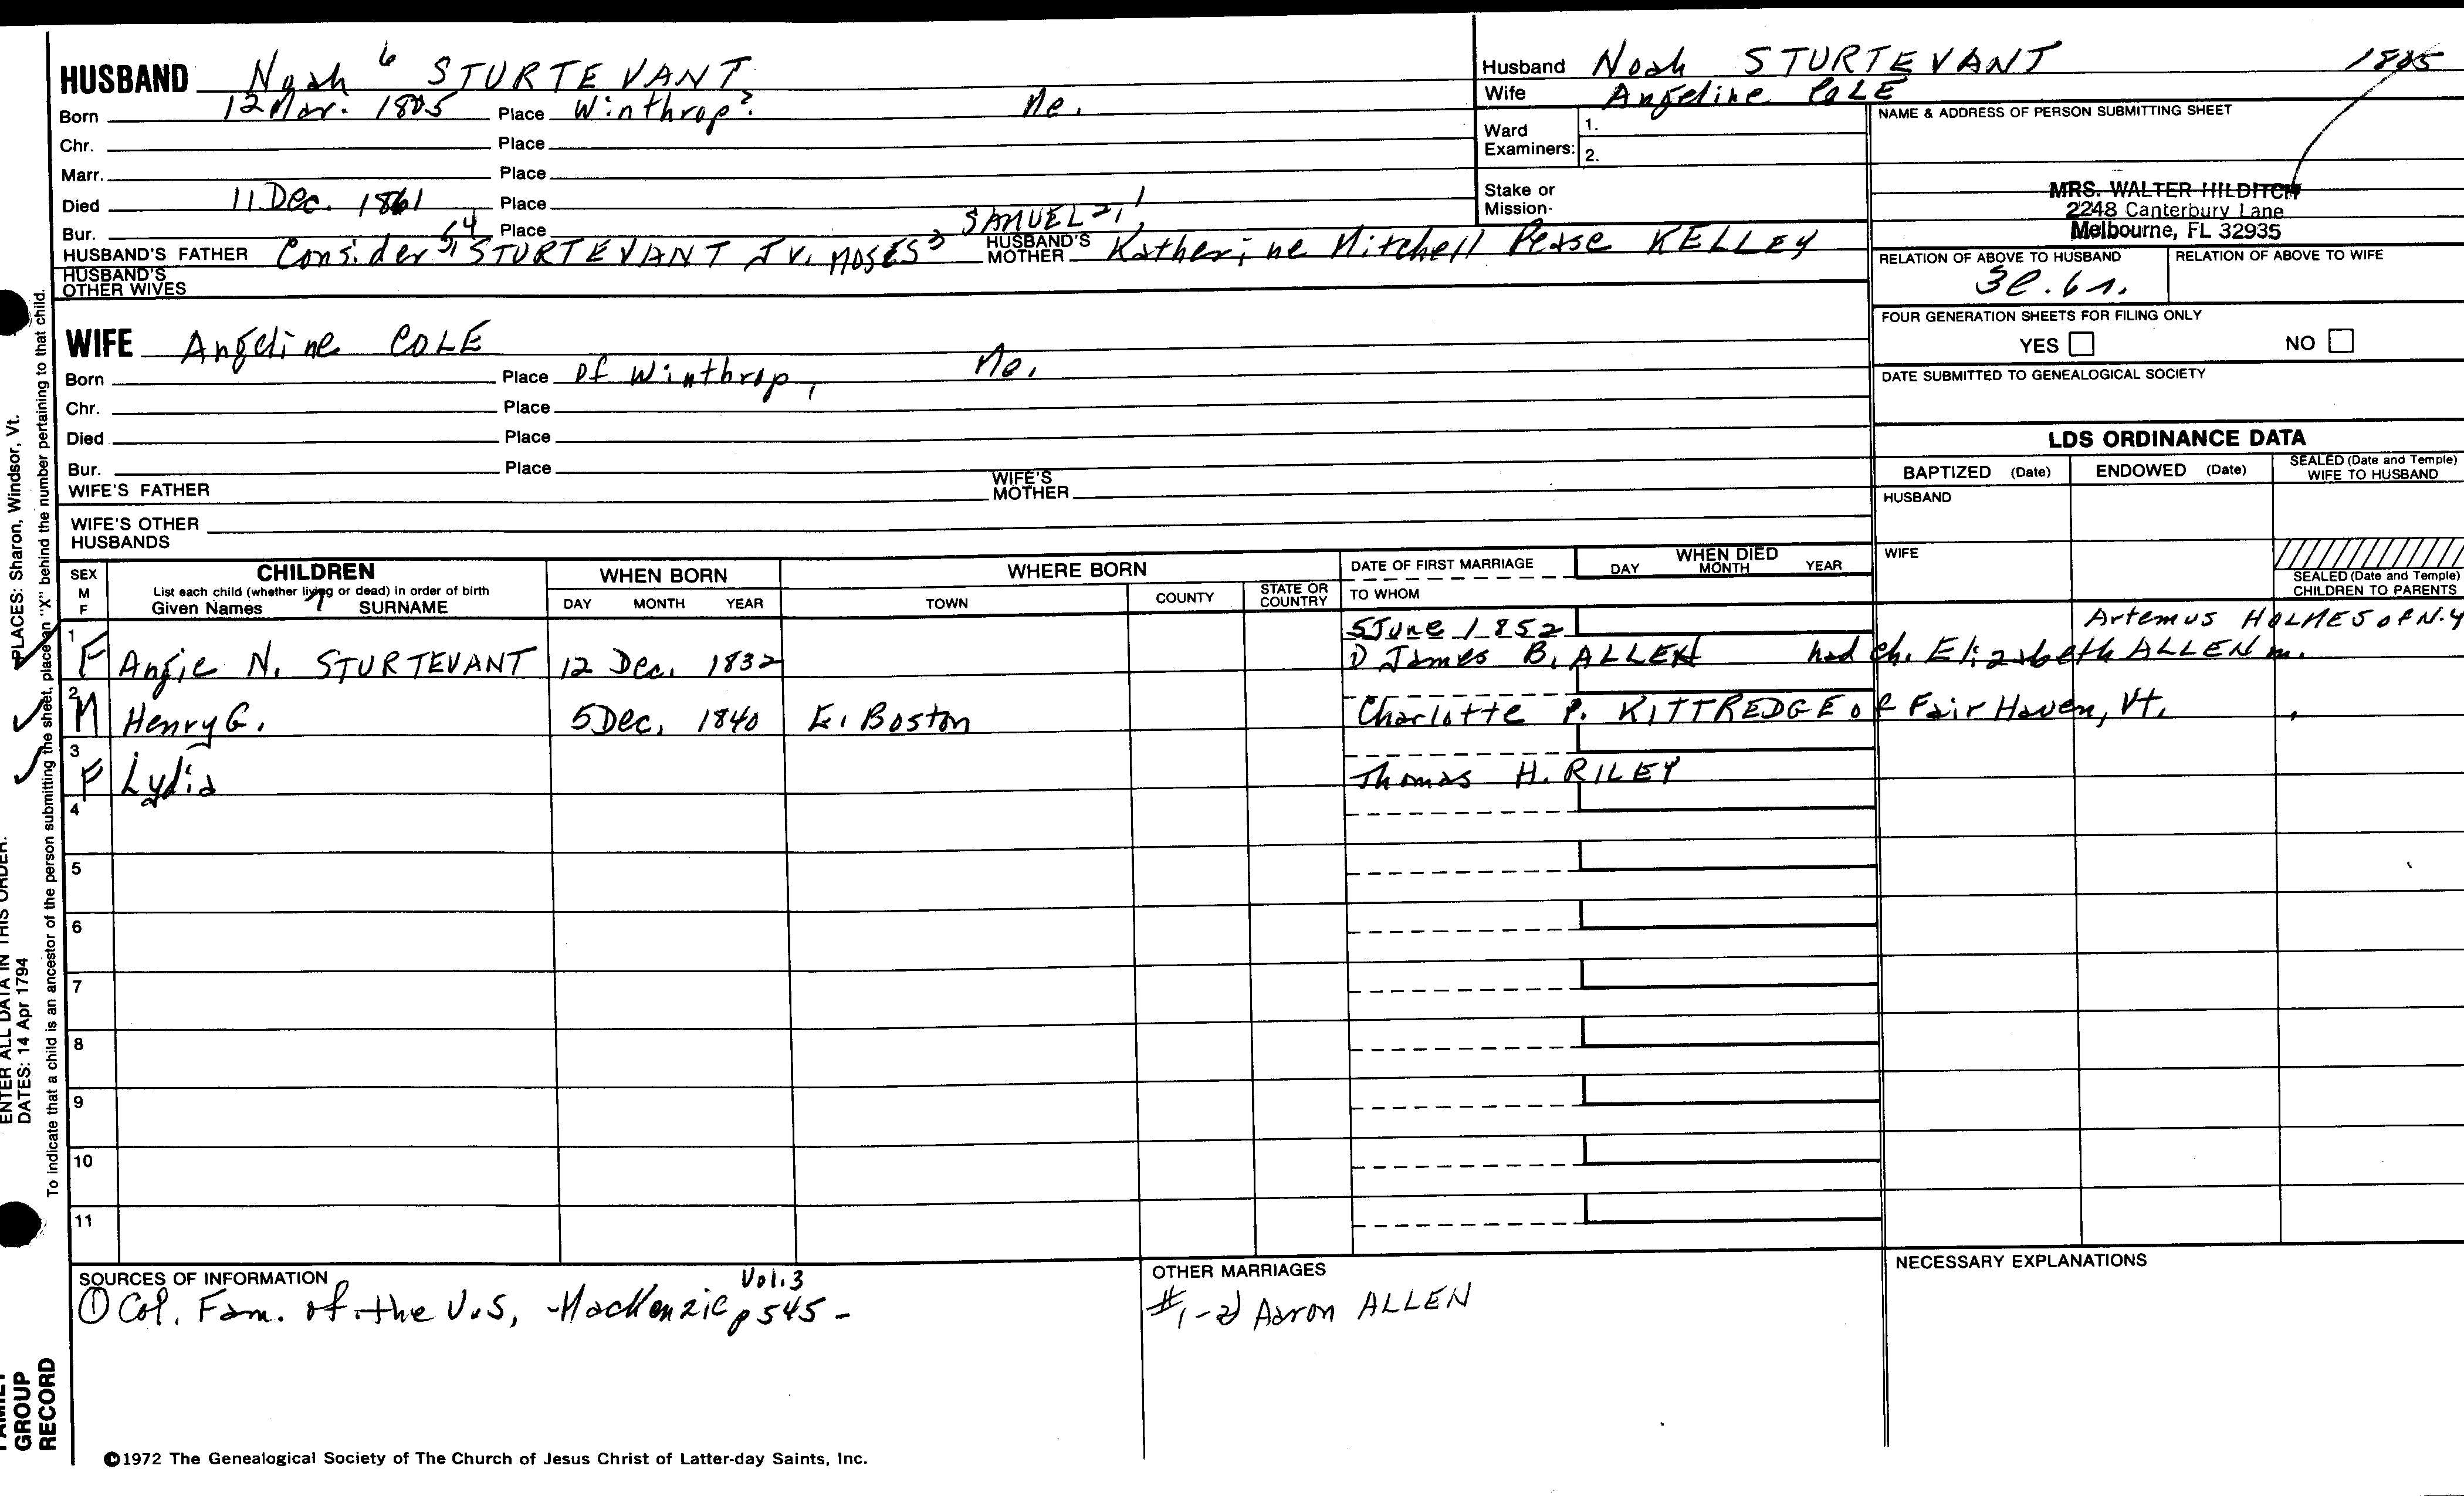 HUSBAND Noah 6 STURTEVANT
Born 12 Mar. 1805 Place Winthrop? Me.
Chr. Place
Marr. Place
Died 11 Dec. 1861 Place
Bur. Place
HUSBAND'S FATHER Consider 5,4 STURTEVANT Jr. MOSES 3 SAMUEL 2,1 HUSBAND'S MOTHER Katherine Mitchell Pease KELLEY
HUSBAND'S OTHER WIVES
Husband Noah STURTEVANT 1805
Wife Angeline COLE
Ward Examiners: 1.
2.
Stake or Mission-
NAME & ADDRESS OF PERSON SUBMITTING SHEET
MRS. WALTER HILDITCH
2248 Canterbury Lane
Melbourne, FL 32935
RELATION OF ABOVE TO HUSBAND RELATION OF ABOVE TO WIFE
3c.6r.
FOUR GENERATION SHEETS FOR FILING ONLY
YES NO
DATE SUBMITTED TO GENEALOGICAL SOCIETY
WIFE Angeline COLE
Born Place of Winthrop, Me.
Chr. Place
Died Place
Bur. Place
WIFE'S FATHER WIFE'S MOTHER
WIFE'S OTHER HUSBANDS
LDS ORDINANCE DATA
BAPTIZED (Date) ENDOWED (Date) SEALED (Date and Temple) WIFE TO HUSBAND
HUSBAND
WIFE
SEALED (Date and Temple) CHILDREN TO PARENTS
SEX M F CHILDREN WHEN BORN WHERE BORN DATE OF FIRST MARRIAGE WHEN DIED
List each child (whether living or dead) in order of birth
Given Names 7 SURNAME DAY MONTH YEAR TOWN COUNTY STATE OR COUNTRY TO WHOM DAY MONTH YEAR
1 5 June 1852 Artemus HOLMES of N.Y
F Angie N. STURTEVANT 12 Dec. 1832 1) James B. ALLEN had ch. Elizabeth ALLEN m.
2 M Henry G. 5 Dec. 1840 E. Boston Charlotte P. KITTREDGE of Fair Haven, Vt.
3 F Lydia Thomas H. RILEY
4
5
6
7
8
9
10
11
SOURCES OF INFORMATION
Vol.3
① Col. Fam. of the U.S, -MacKenzie p545 -
OTHER MARRIAGES
#1-2) Aaron ALLEN
NECESSARY EXPLANATIONS
©1972 The Genealogical Society of The Church of Jesus Christ of Latter-day Saints, Inc.
PLACES: Sharon, Windsor, Vt.
To indicate that a child is an ancestor of the person submitting the sheet, place an "X" behind the number pertaining to that child.
ENTER ALL DATA IN THIS ORDER:
DATES: 14 Apr 1794
FAMILY
GROUP
RECORD